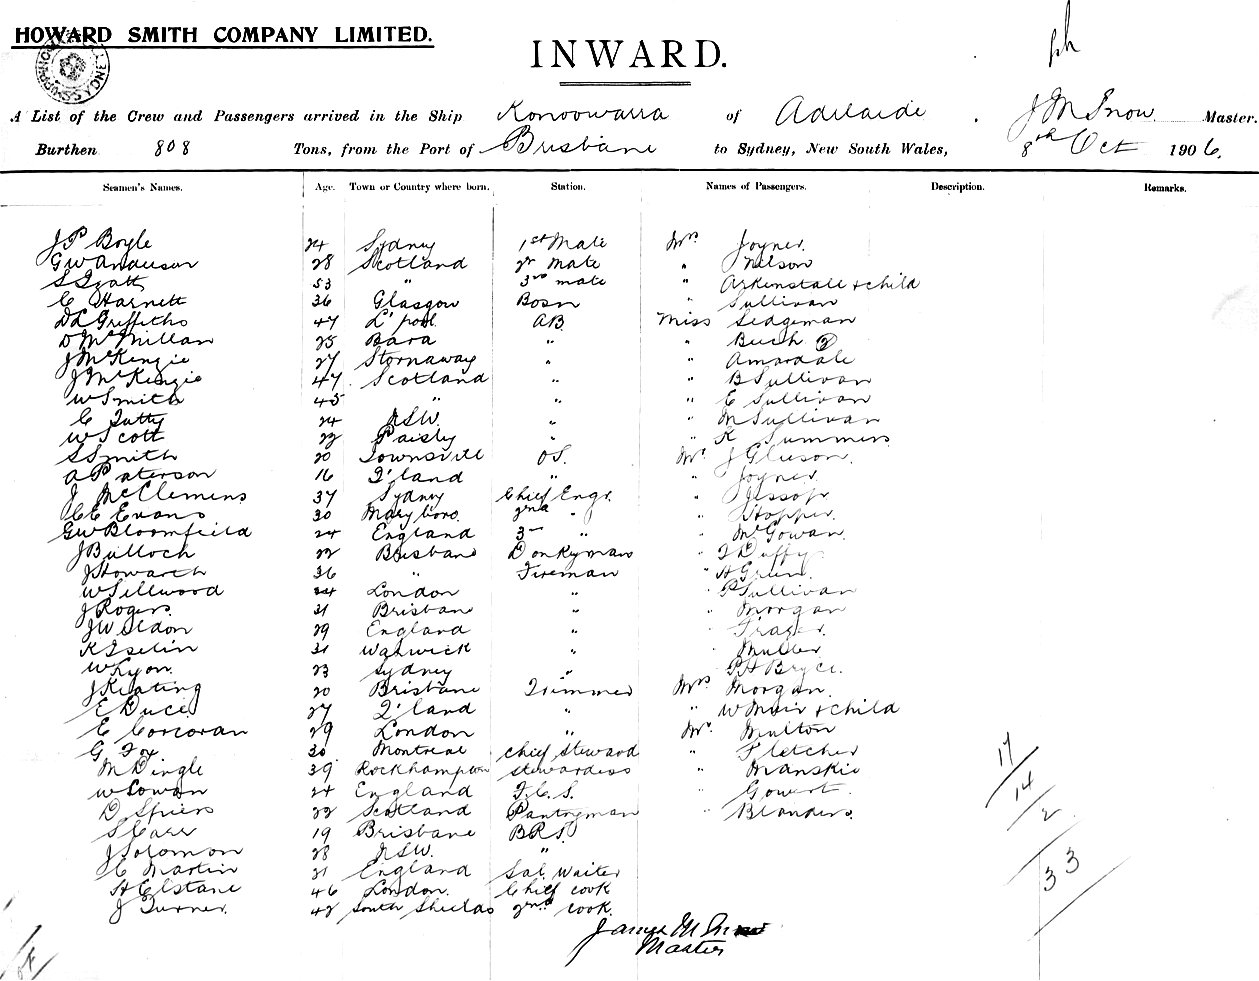 HOWARD SMITH COMPANY LIMITED.
INWARD.
A List of the Crew and Passengers arrived in the Ship Konoowarra of Adelaide. J M Snow Master.
Burthen 808 Tons, from the Port of Brisbane to Sydney, New South Wales, 8th Oct 1906.
Seamen's Names. Age. Town or Country where born. Station. Names of Passengers. Description. Remarks.
J P Boyle 24 Sydney 1st Mate Mrs Joyner
G W Anderson 28 Scotland 2nd Mate " Nelson
S 53 " 3rd mate " Arkinstall & child
C Harnett 36 Glasgow Bosn " Sullivan
D L Griffiths 47 L'pool AB Miss Sedgeman
D McMillan 25 Bara " " Buch 2
J McKenzie 27 Stornaway " " Amardale
J McKenzie 47 Scotland " " B Sullivan
W Smith 45 " " " E Sullivan
C Tutty 24 NSW. " " M Sullivan
W Scott 22 Paisly " " K Summers
S Smith 20 Townsvill OS. Mr J Gleeson
A Paterson 16 Q'land " " Joyner
J McClemens 37 Sydney Chief Engr. " Jessop
C E Evans 30 Maryboro. 2nd " " Hopper
G W Bloomfield 24 England 3rd " " McGowan
J Bulloch 22 Brisbane Donkyman " J Duffy
J Howarth 36 " Fireman " H Green
W Sillwood 24 London " " P Sullivan
J Rogers 21 Brisbane " " Morgan
J W Seldon 29 England " " Fraser
K Iselin 31 Warwick " " Muller
W Lyon 23 Sydney " " P H Bryce
J Keating 20 Brisbane Trimmer Mrs Morgan
E Duce 27 Q'land " " W Muir & child
E Corcoran 29 London " Mr Multon
G Fox 30 Montreal Chief Steward " Fletcher
M Dingle 39 Rockhampton Stewardess " Manskie
W Cowan 24 England F.C.S. " Gowert
D Spiers 22 Scotland Pantryman " Blanders
S Carr 19 Brisbane BRS.
J Solomon 28 NSW. "
C Martin 21 England Sal. Waiter
H Elstane 46 London Chief cook
J Turner 42 South Shields 2nd cook
James M Snow
Master
17
14
2
33